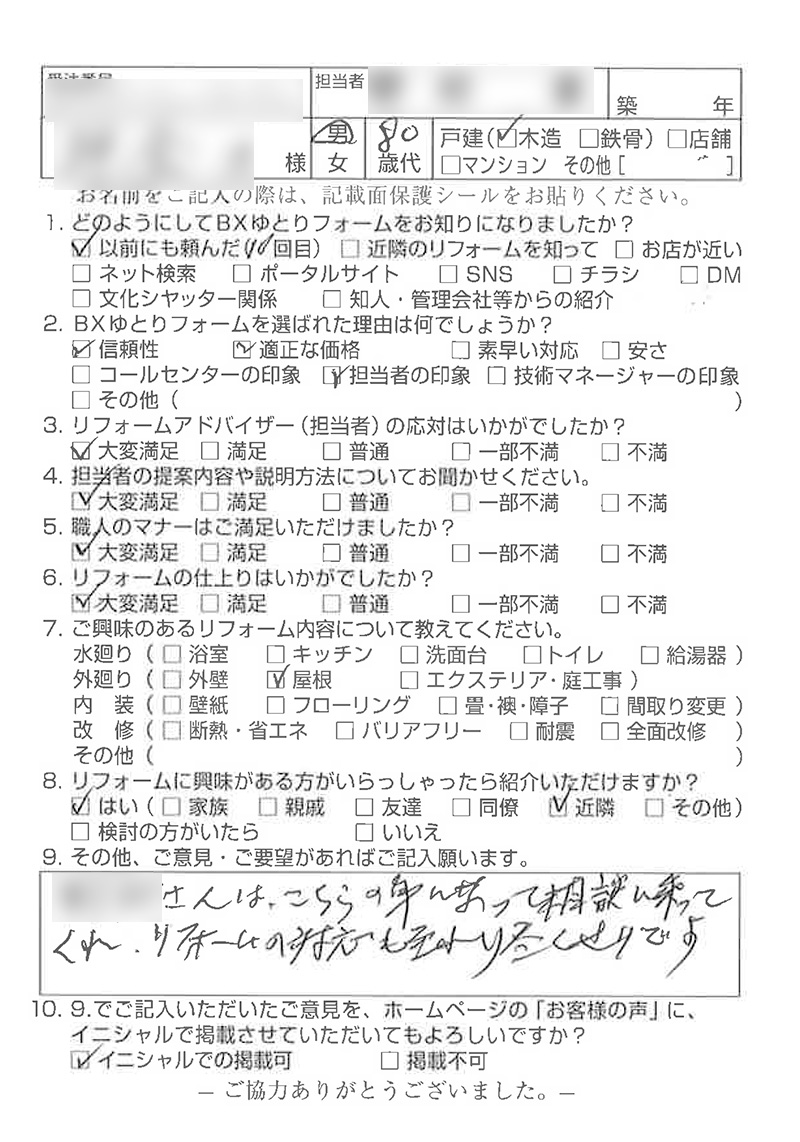 担当者
築 年
様 男 女 80 歳代 戸建(☑木造 □鉄骨) □店舗
□マンション その他[ ]
お名前をご記入の際は、記載面保護シールをお貼りください。
1. どのようにしてBXゆとりフォームをお知りになりましたか?
☑ 以前にも頼んだ(10回目) □ 近隣のリフォームを知って □ お店が近い
□ ネット検索 □ ポータルサイト □ SNS □ チラシ □ DM
□ 文化シヤッター関係 □ 知人・管理会社等からの紹介
2. BXゆとりフォームを選ばれた理由は何でしょうか?
☑ 信頼性 ☑ 適正な価格 □ 素早い対応 □ 安さ
□ コールセンターの印象 ☑ 担当者の印象 □ 技術マネージャーの印象
□ その他( )
3. リフォームアドバイザー(担当者)の応対はいかがでしたか?
☑ 大変満足 □ 満足 □ 普通 □ 一部不満 □ 不満
4. 担当者の提案内容や説明方法についてお聞かせください。
☑ 大変満足 □ 満足 □ 普通 □ 一部不満 □ 不満
5. 職人のマナーはご満足いただけましたか?
☑ 大変満足 □ 満足 □ 普通 □ 一部不満 □ 不満
6. リフォームの仕上りはいかがでしたか?
☑ 大変満足 □ 満足 □ 普通 □ 一部不満 □ 不満
7. ご興味のあるリフォーム内容について教えてください。
水廻り(□ 浴室 □ キッチン □ 洗面台 □トイレ □ 給湯器)
外廻り(□ 外壁 ☑ 屋根 □ エクステリア・庭工事)
内 装(□ 壁紙 □ フローリング □ 畳・襖・障子 □ 間取り変更)
改 修(□ 断熱・省エネ □ バリアフリー □ 耐震 □ 全面改修)
その他( )
8. リフォームに興味がある方がいらっしゃったら紹介いただけますか?
☑ はい(□ 家族 □ 親戚 □ 友達 □ 同僚 ☑ 近隣 □ その他)
□ 検討の方がいたら □ いいえ
9. その他、ご意見・ご要望があればご記入願います。
さんは、こちらの身になって相談に乗って
くれ、リフォームの対応も至れり尽くせりです
10. 9.でご記入いただいたご意見を、ホームページの「お客様の声」に、
イニシャルで掲載させていただいてもよろしいですか?
☑ イニシャルでの掲載可 □ 掲載不可
― ご協力ありがとうございました。―